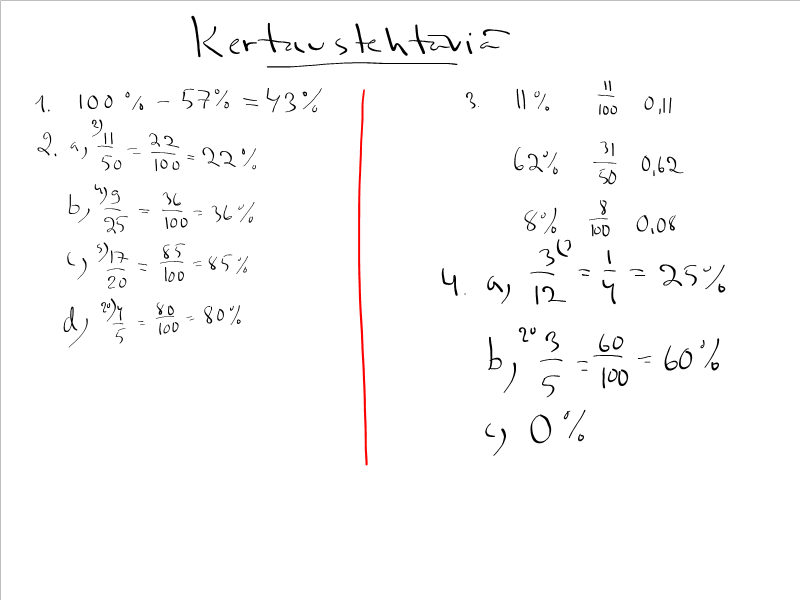 Kertaustehtäviä
1. 100 % - 57% = 43%
2. a) 2) 11/50 = 22/100 = 22%
b) 4) 9/25 = 36/100 = 36%
c) 5) 17/20 = 85/100 = 85%
d) 20) 4/5 = 80/100 = 80%
3. 11% 11/100 0,11
62% 31/50 0,62
8% 8/100 0,08
4. a) 3/12 (3 = 1/4 = 25%
b) 20 3/5 = 60/100 = 60%
c) 0%